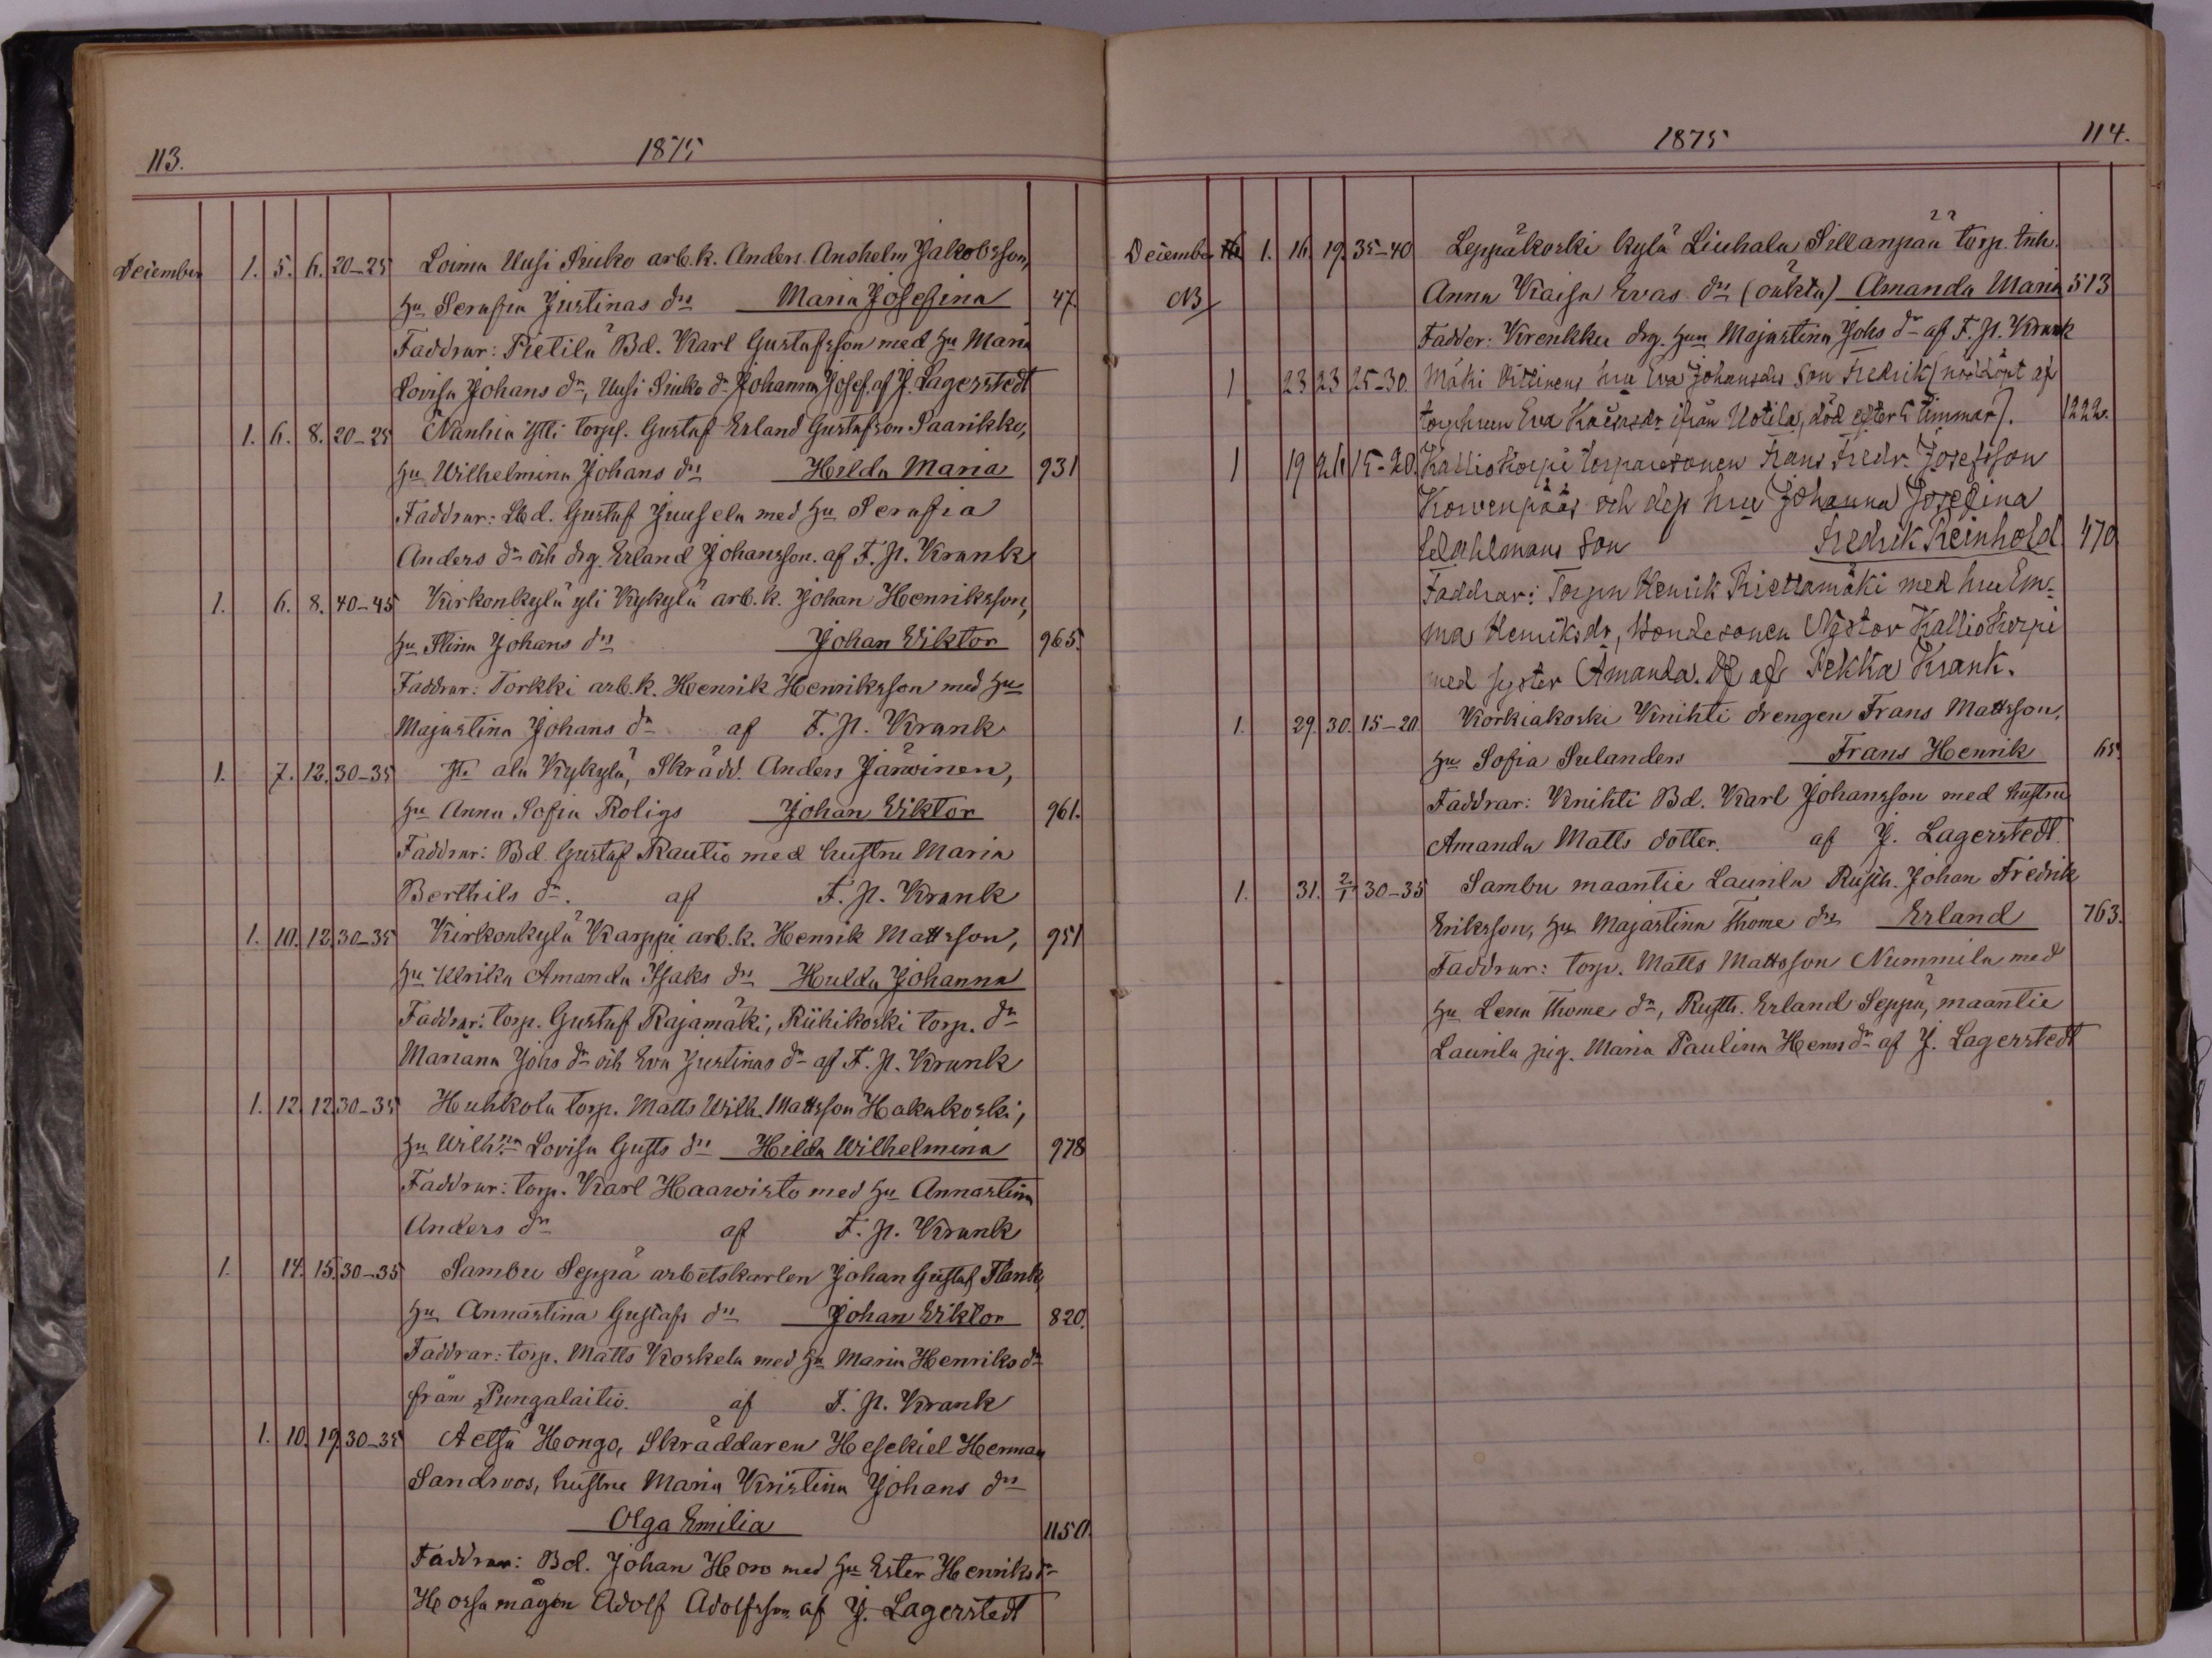 113. 1875
December 1. 5. 6. 20-25 Loima Uusi Sinko arb.k. Anders Anshelm Jakobsson,
hu Serafia Justinas drs Maria Josefina 47.
Faddrar: Pietilä Bd. Karl Gustafsson med hu Maria
Lovisa Johans dr, Uusi Sinko dr Johanna Josef. af J. Lagerstedt
1. 6. 8. 20-25 Nanhia Ylli torpf. Gustaf Erland Gustafson Saarikko,
hu Wilhelmina Johans drs Hilda Maria 931
Faddrar: Lbd. Gustaf Juusela med hu Serafia
Anders dr och drg. Erland Johansson. af F. P. Krank
1. 6. 8. 40-45 Kirkonkylä yli Kykylä arb.k. Johan Henriksson,
hu Stina Johans drs Johan Viktor 965.
Faddrar: Torkki arb.k. Henrik Henriksson med hu
Majastina Johans dr af F. P. Krank
1. 7. 12. 30-35 K. ala Kykylä, Skrädd. Anders Järwinen,
hu Anna Sofia Roligs Johan Viktor 961.
Faddrar: Bd. Gustaf Rautio med hustru Maria
Berthils dr. af F. P. Krank
1. 10. 12. 30-35 Kirkonkylä Karppi arb.k. Henrik Mattsson, 951
hu Ulrika Amanda Isaks drs Hulda Johanna
Faddrar: torp. Gustaf Rajamäki, Riihikoski torp. dr
Mariana Johs dr och Eva Justinas dr af F. P. Krank
1. 12. 12. 30-35 Huhkola torp. Matts Wilh. Mattsson Hakakoski,
hu Wilhna Lovisa Gusts drs Hilda Wilhelmina 978
Faddrar: torp. Karl Haawisto med hu Annastina
Anders dr af F. P. Krank
1. 14. 15. 30-35 Sambu Seppä arbetskarlen Johan Gustaf Flank,
hu Annastina Gustafs drs Johan Viktor 820.
Faddrar: torp. Matts Koskela med hu Maria Henriks dr
från Pungalaitio. af F. P. Krank
1. 10. 19. 30-35 Aetsä Hongo, Skräddaren Hesekiel Herman
Sandroos, hustru Maria Kristina Johans drs
Olga Emilia 1150.
Faddrar: Bd. Johan Horo med hu Ester Henriks dr
Horsa mågen Adolf Adolfsson af J. Lagerstedt
1875 114.
December 1. 16. 19. 35-40 Leppäkoski kylä Liuhala Sillanpää torp. inh.
NB Anna Kaisa Evas drs (oäkta) Amanda Maria 513
Fadder: Krenkku drg. hun Majastina Johs dr af F. P. Krank
1 23 23 25-30. Mäki Vittinens hru Eva Johansdrs Son Fredrik (nöddöpt af
torphrun Eva Kaisasdr ifrån Uotila, död efter 5 timmar). 1222.
1 19 26 15-20. Kalliokorpi torparesonen Frans Fredr. Josefsson
Korvenpääs och dess hru Johanna Josefina
Selahlmans Son Fredrik Reinhold 470
Faddrar: Torpn Henrik Riettamäki med hru Em-
ma Henriksdr, bondesonen Nestor Kalliokorpi
med syster Amanda. af Pekka Krank.
1. 29. 30. 15-20 Korkiakoski Knihti drengen Frans Mattsson,
hu Sofia Sulanders Frans Henrik 65.
Faddrar: Knihti Bd. Karl Johansson med hustru
Amanda Matts dotter. af J. Lagerstedt
1. 31. 2/1 30-35 Sambu maantie Laurila Rusth. Johan Fredrik
Eriksson, hu Majastina Thome drs Erland 763.
Faddrar: torp. Matts Mattsson Nummila med
hu Lena Thome dr, Rusth. Erland Seppä, maantie
Laurila pig. Maria Paulina Henrs dr af J. Lagerstedt